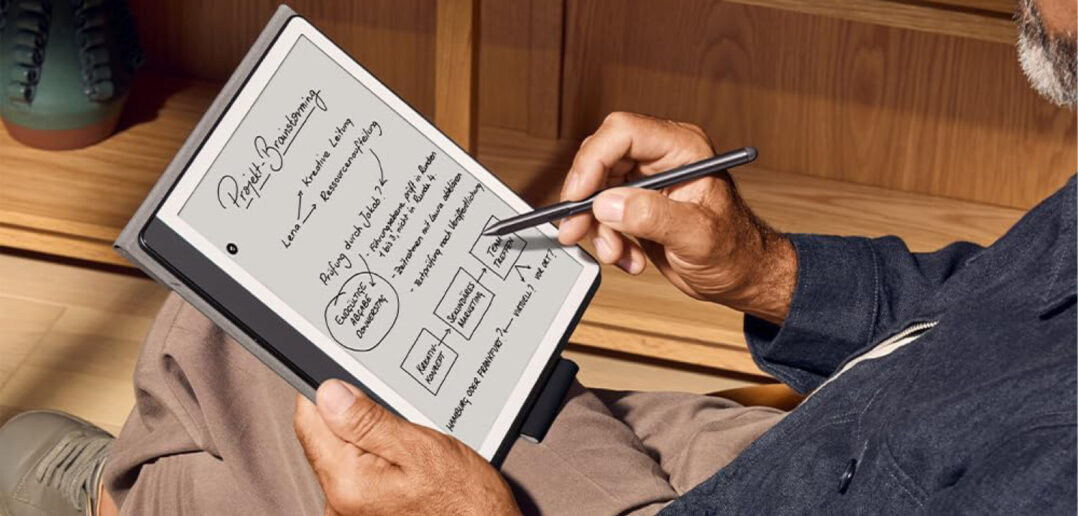 Projekt-Brainstorming
Lena → Kreative Leitung
→ Ressourcenaufteilung
Prüfung durch Jakob?
- Führungsebene prüft in Runden
1 bis 3, nicht in Runde 4.
- Zeitrahmen mit Laura abklären
- Textprüfung nach Veröffentlichung
ENDGÜLTIGE
ABGABE
DONNERSTAG
KREATIV
KONZEPT
SEKUNDÄRES
MARKETING
TEAM
TREFFEN
HAMBURG ODER FRANKFURT? ← VIRTUELL? VOR ORT?